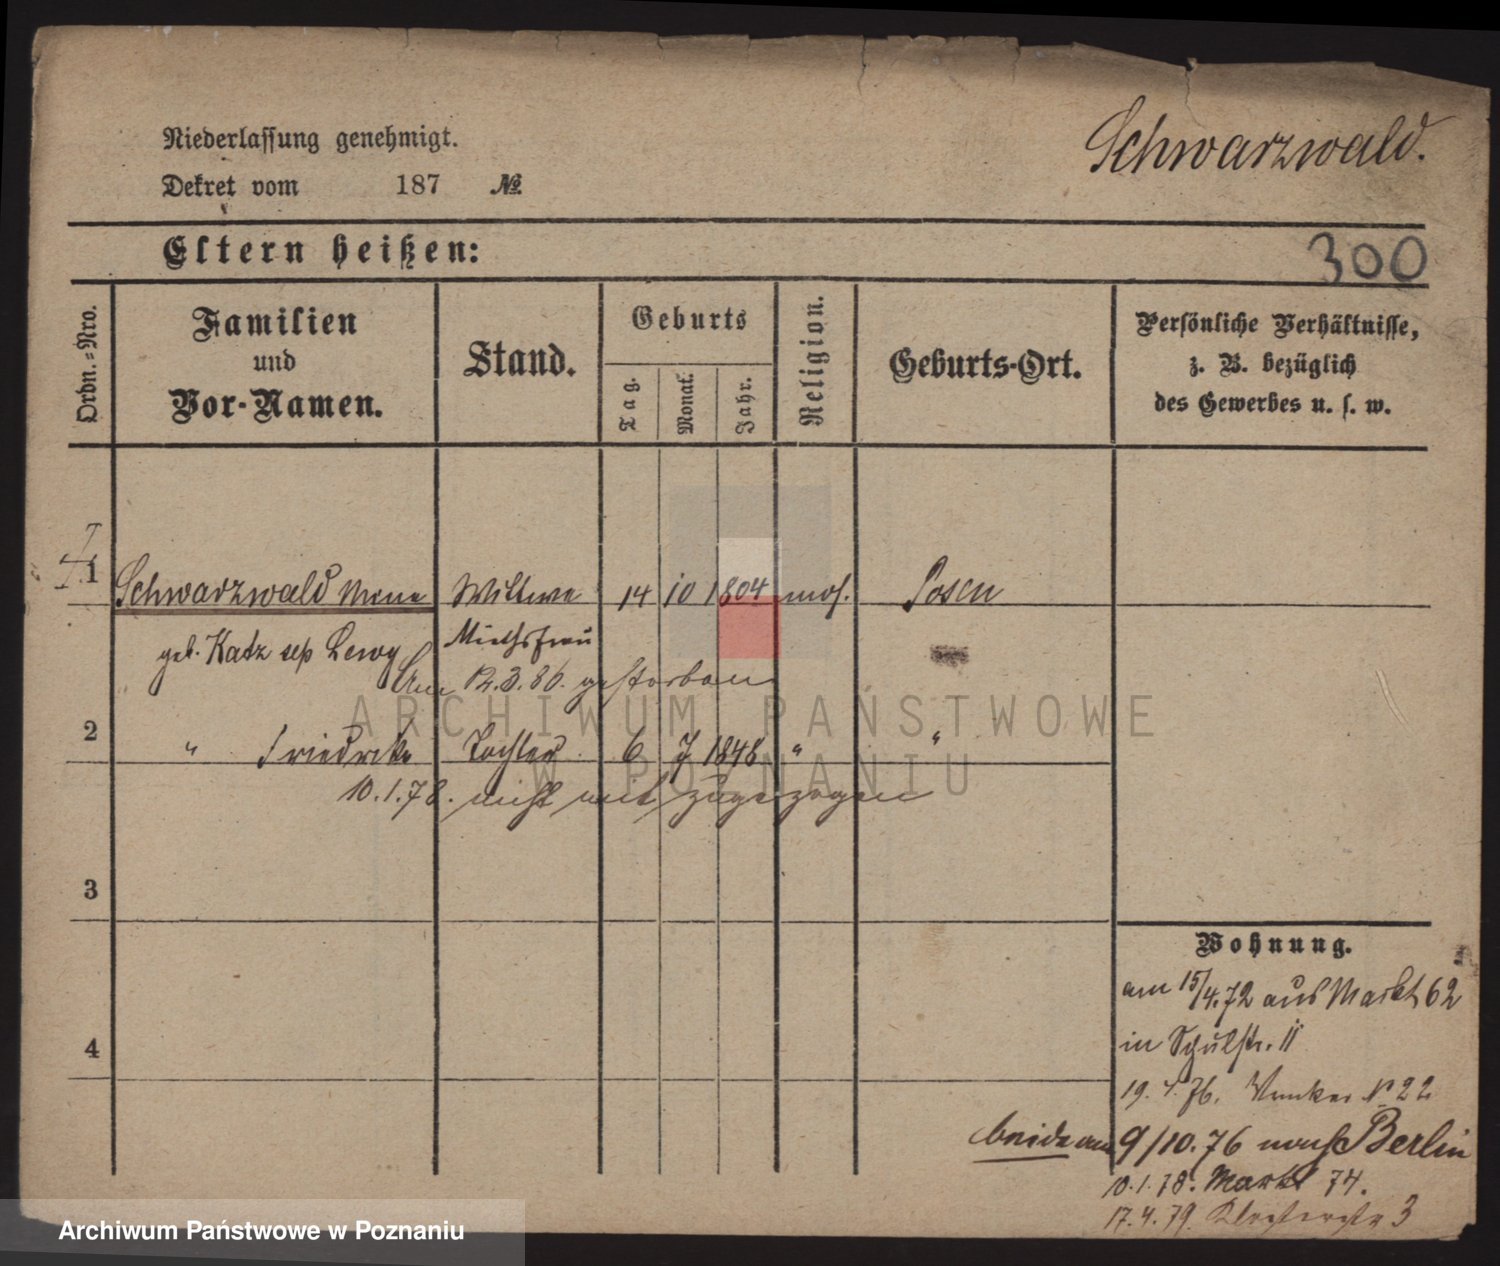 Schwarzwald.
Niederlassung genehmigt.
Dekret vom 187 №
Eltern heißen:
300
Ordn.-Nro.
Familien
und
Vor-Namen.
Stand.
Geburts
Tag.
Monat.
Jahr.
Religion.
Geburts-Ort.
Persönliche Verhältnisse,
z. B. bezüglich
des Gewerbes u. s. w.
1 Schwarzwald Wittwe 14 10 1804 mos. Posen
geb. Katz sep Lewy Miethsfrau
Am 12.3.86. gestorben
2 " Friedrike Tochter 6 7 1848 " "
10.1.78. nicht mit zugezogen
3
4
Wohnung.
am 15/4.72 aus Markt 62
in Schulstr. 11
19. 4. 76. N 22
beide am 9/10.76 nach Berlin
10.1.78. Markt 74.
17.4.79. Klosterstr 3
ARCHIWUM PAŃSTWOWE
W POZNANIU
Archiwum Państwowe w Poznaniu